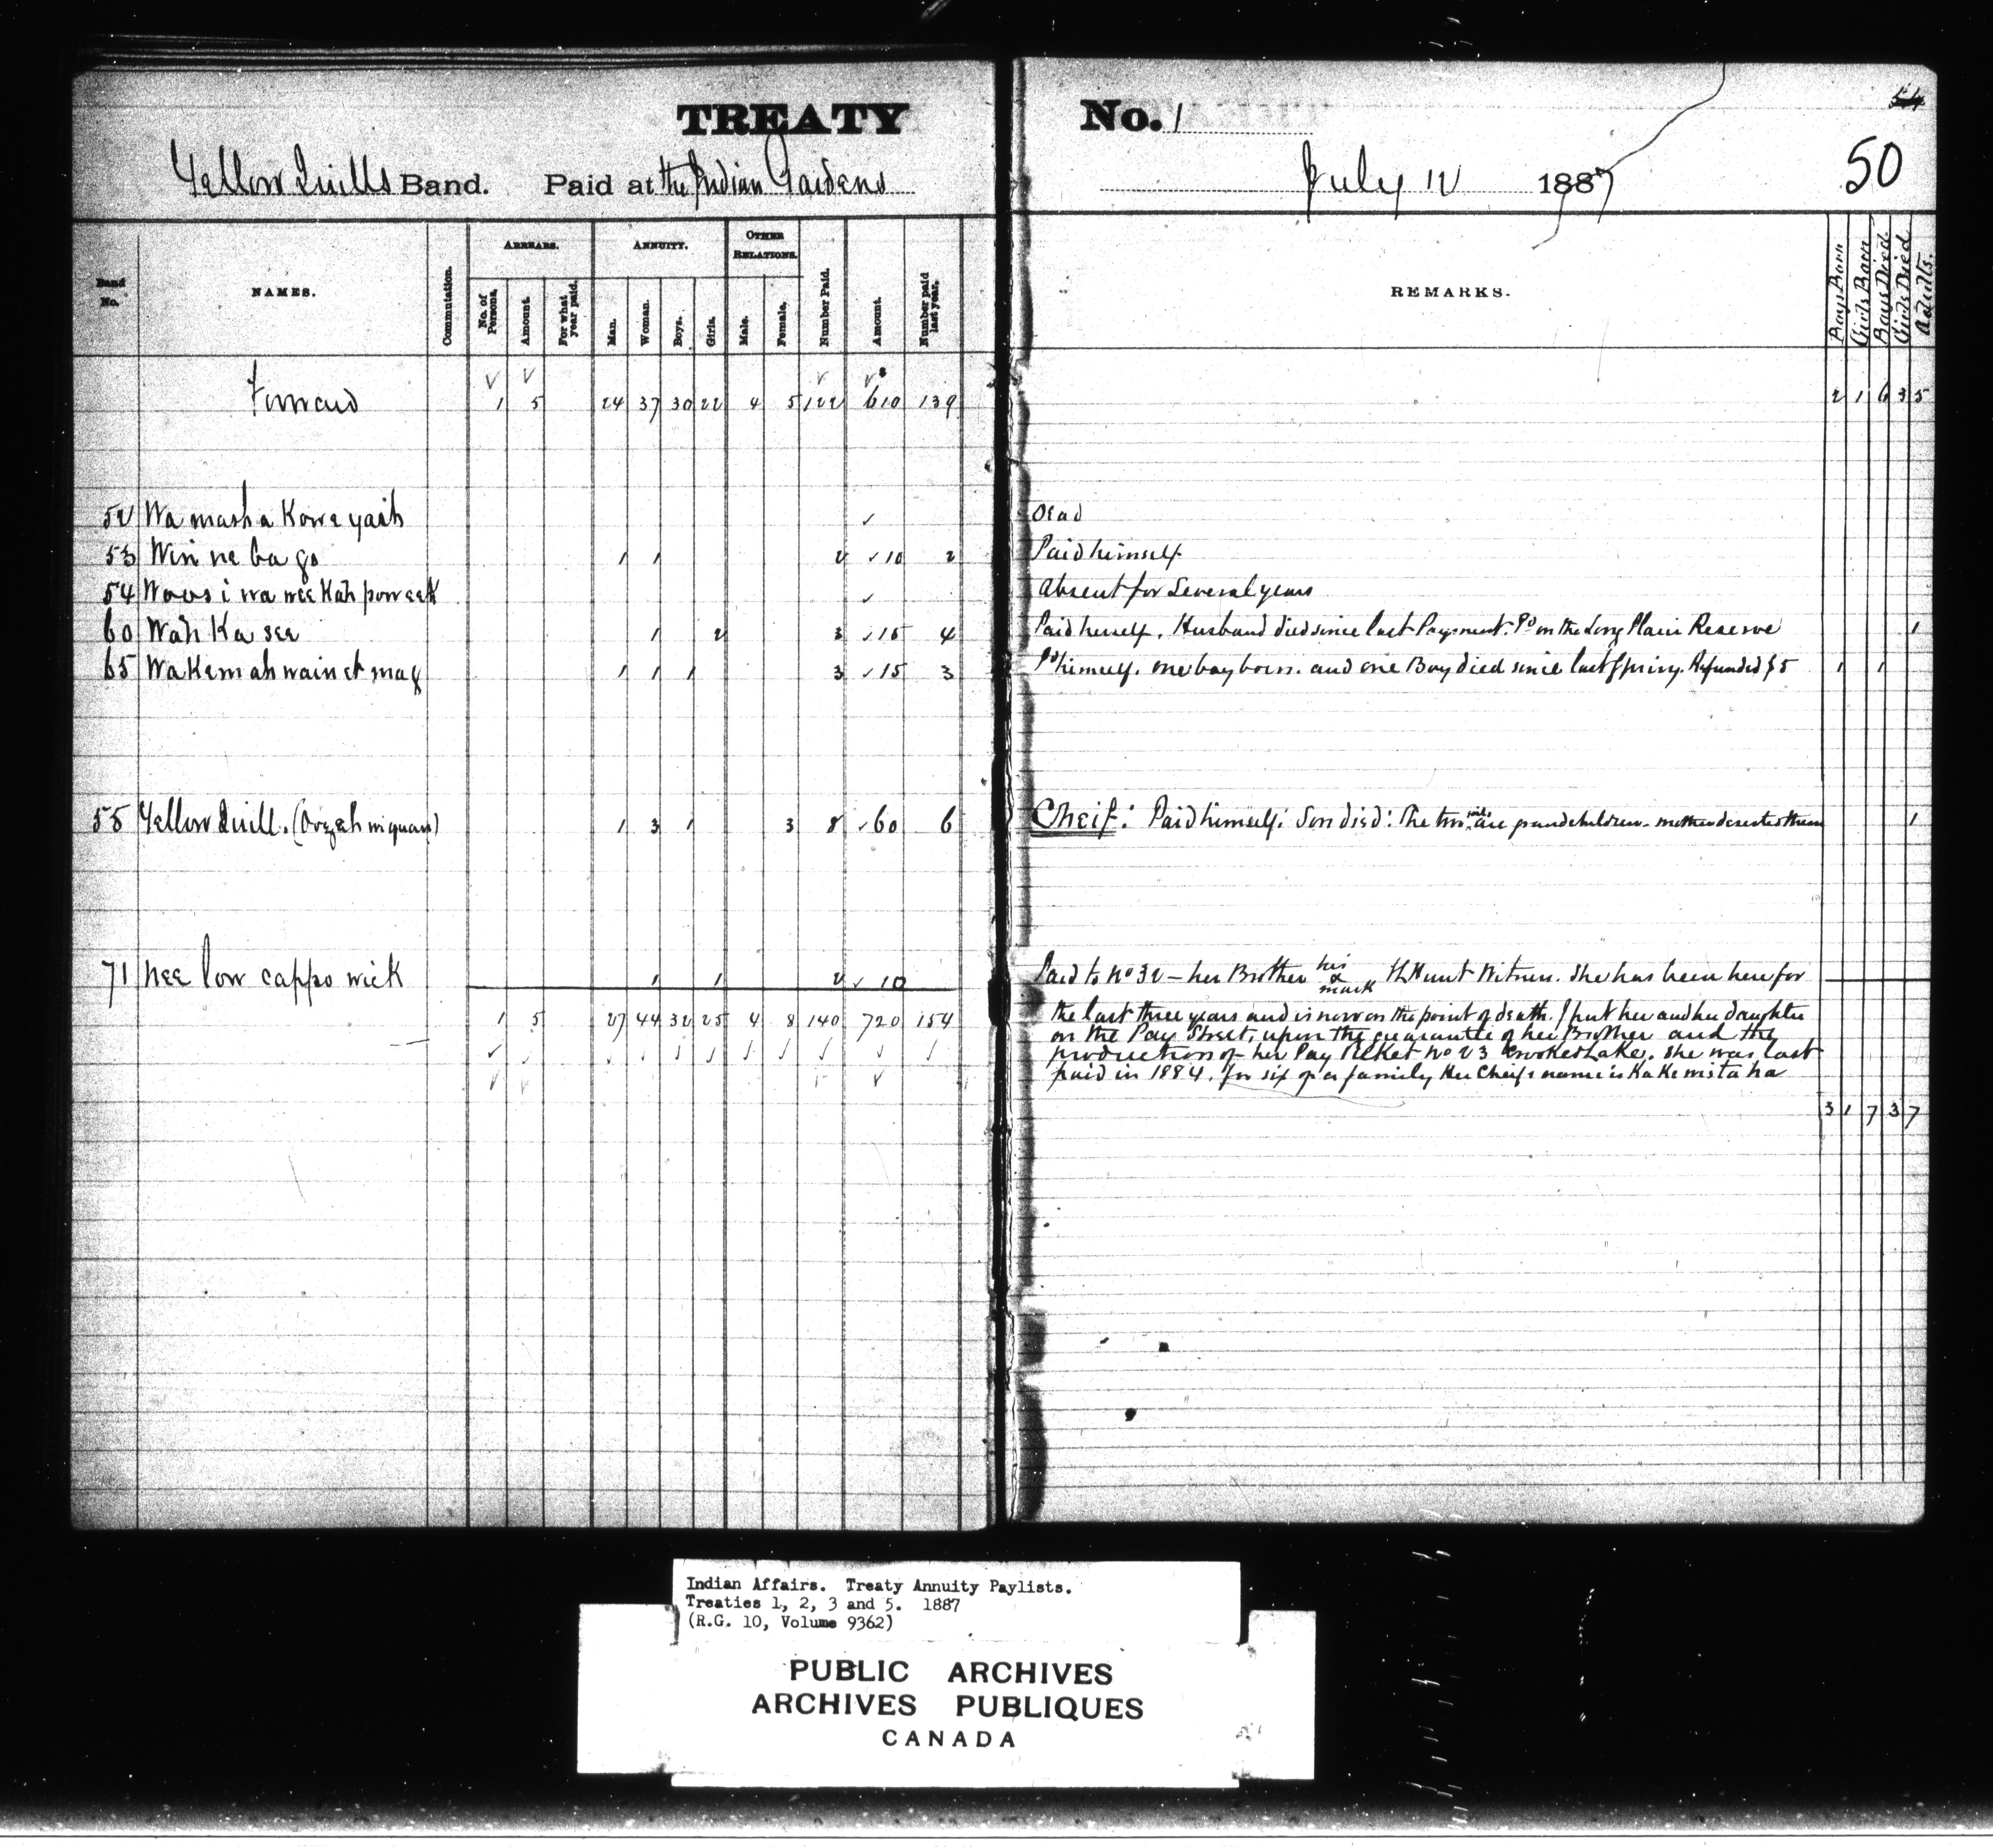 TREATY No. 1
54
50
Yellow Quills Band. Paid at the Indian Gardens July 12 1887
Band No. NAMES. Commutation. ARREARS. No. of Persons. Amount. For what year paid. ANNUITY. Man. Woman. Boys. Girls. OTHER RELATIONS. Male. Female. Number Paid. Amount. Number paid last year. REMARKS. Boys Born Girls Born Boys Died Girls Died Adults.
Forward 1 5 24 37 30 22 4 5 122 610 139 2 1 6 3 5
52 Wa mash a Kowe yash Dead
53 Win ne ba go 1 1 2 10 2 Paid himself
54 Woos i wa nee Kah poweek Absent for Several years
60 Wah Ka see 1 2 3 15 4 Paid herself. Husband died since last Payment. Pd on the Long Plain Reserve 1
65 Wakemahwainetmag 1 1 1 3 15 3 Pd himself. one boy born. and one Boy died since last Spring. Refunded $5 1 1
55 Yellow Quill. 1 3 1 3 8 60 6 Cheif: Paid himself: Son died: The two girls are grandchildren - mother deserted them 1
71 Nee low cappo wick 1 1 2 10 Paid to No 32 - her Brother his x mark Witness. She has been here for
1 5 27 44 32 25 4 8 140 720 154 the last three years and is now on the point of death. I put her and her daughter
on the Pay Sheet, upon the guarantee of her Brother and the
production of her Pay Ticket No 23 Crooked Lake. She was last
paid in 1884. for six of a family Her Cheifs name is Kakemistaha
3 1 7 3 7
Indian Affairs. Treaty Annuity Paylists.
Treaties 1, 2, 3 and 5. 1887
(R.G. 10, Volume 9362)
PUBLIC ARCHIVES
ARCHIVES PUBLIQUES
CANADA